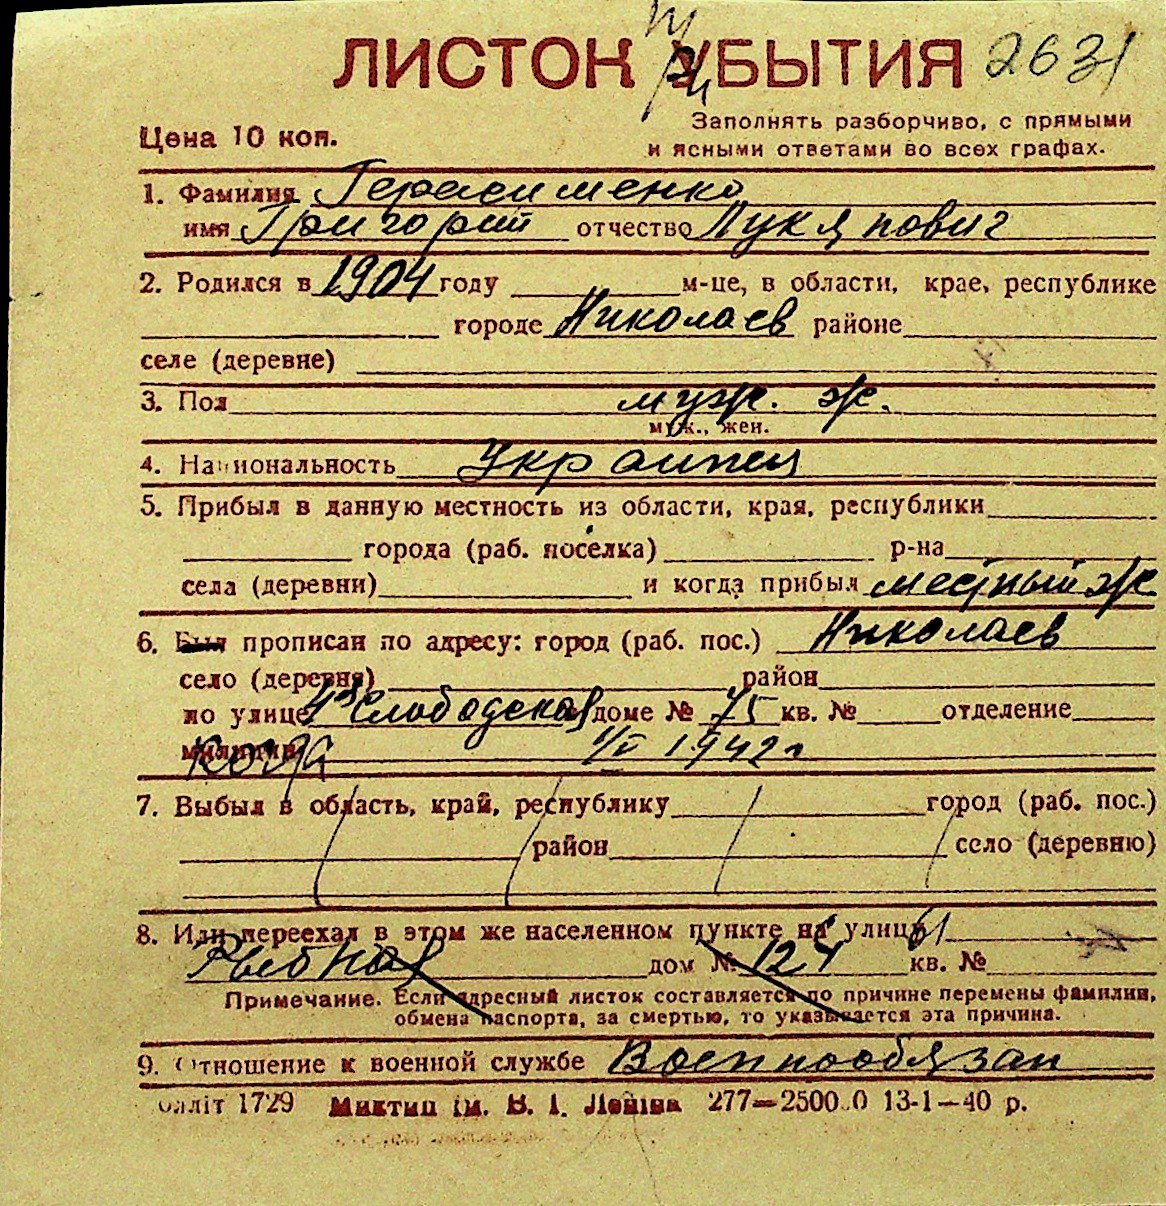 ЛИСТОК УБЫТИЯ 2631
Цена 10 коп.
Заполнять разборчиво, с прямыми
и ясными ответами во всех графах.
1. Фамилия Герасименко
имя Григорий отчество Лукянович
2. Родился в 1904 году м-це, в области, крае, республике
городе Николаев районе
селе (деревне)
3. Пол муж. ж.
муж., жен.
4. Национальность Украинец
5. Прибыл в данную местность из области, края, республики
города (раб. поселка) р-на
села (деревни) и когда прибыл местный ж
6. Был прописан по адресу: город (раб. пос.) Николаев
село (деревня) район
по улице Слободская доме № 75 кв. № отделение
милиции Когда 1942 г
7. Выбыл в область, край, республику город (раб. пос.)
район село (деревню)
8. Или переехал в этом же населенном пункте на улицу
Рыбная дом № 124 кв. №
Примечание. Если адресный листок составляется по причине перемены фамилии,
обмена паспорта, за смертью, то указывается эта причина.
9. Отношение к военной службе Военнообязан
1729 Миктип ім. В. І. Леніна 277—2500 0 13-1—40 р.